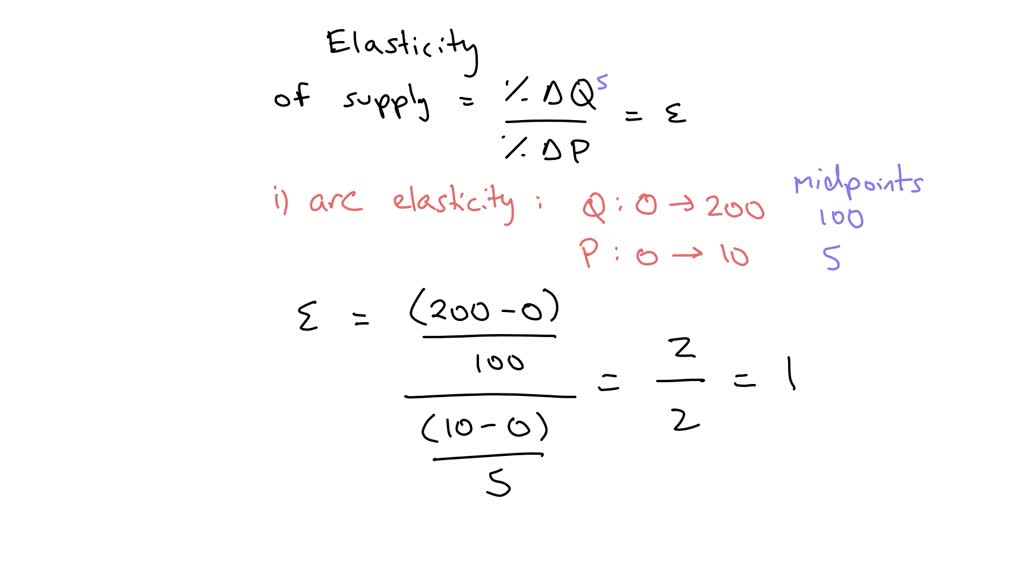 Elasticity
of supply = % ΔQˢ / % ΔP = ε
i) arc elasticity : Q : 0 → 200
P : 0 → 10
midpoints
100
5
ε = ((200 - 0) / 100) / ((10 - 0) / 5) = 2 / 2 = 1